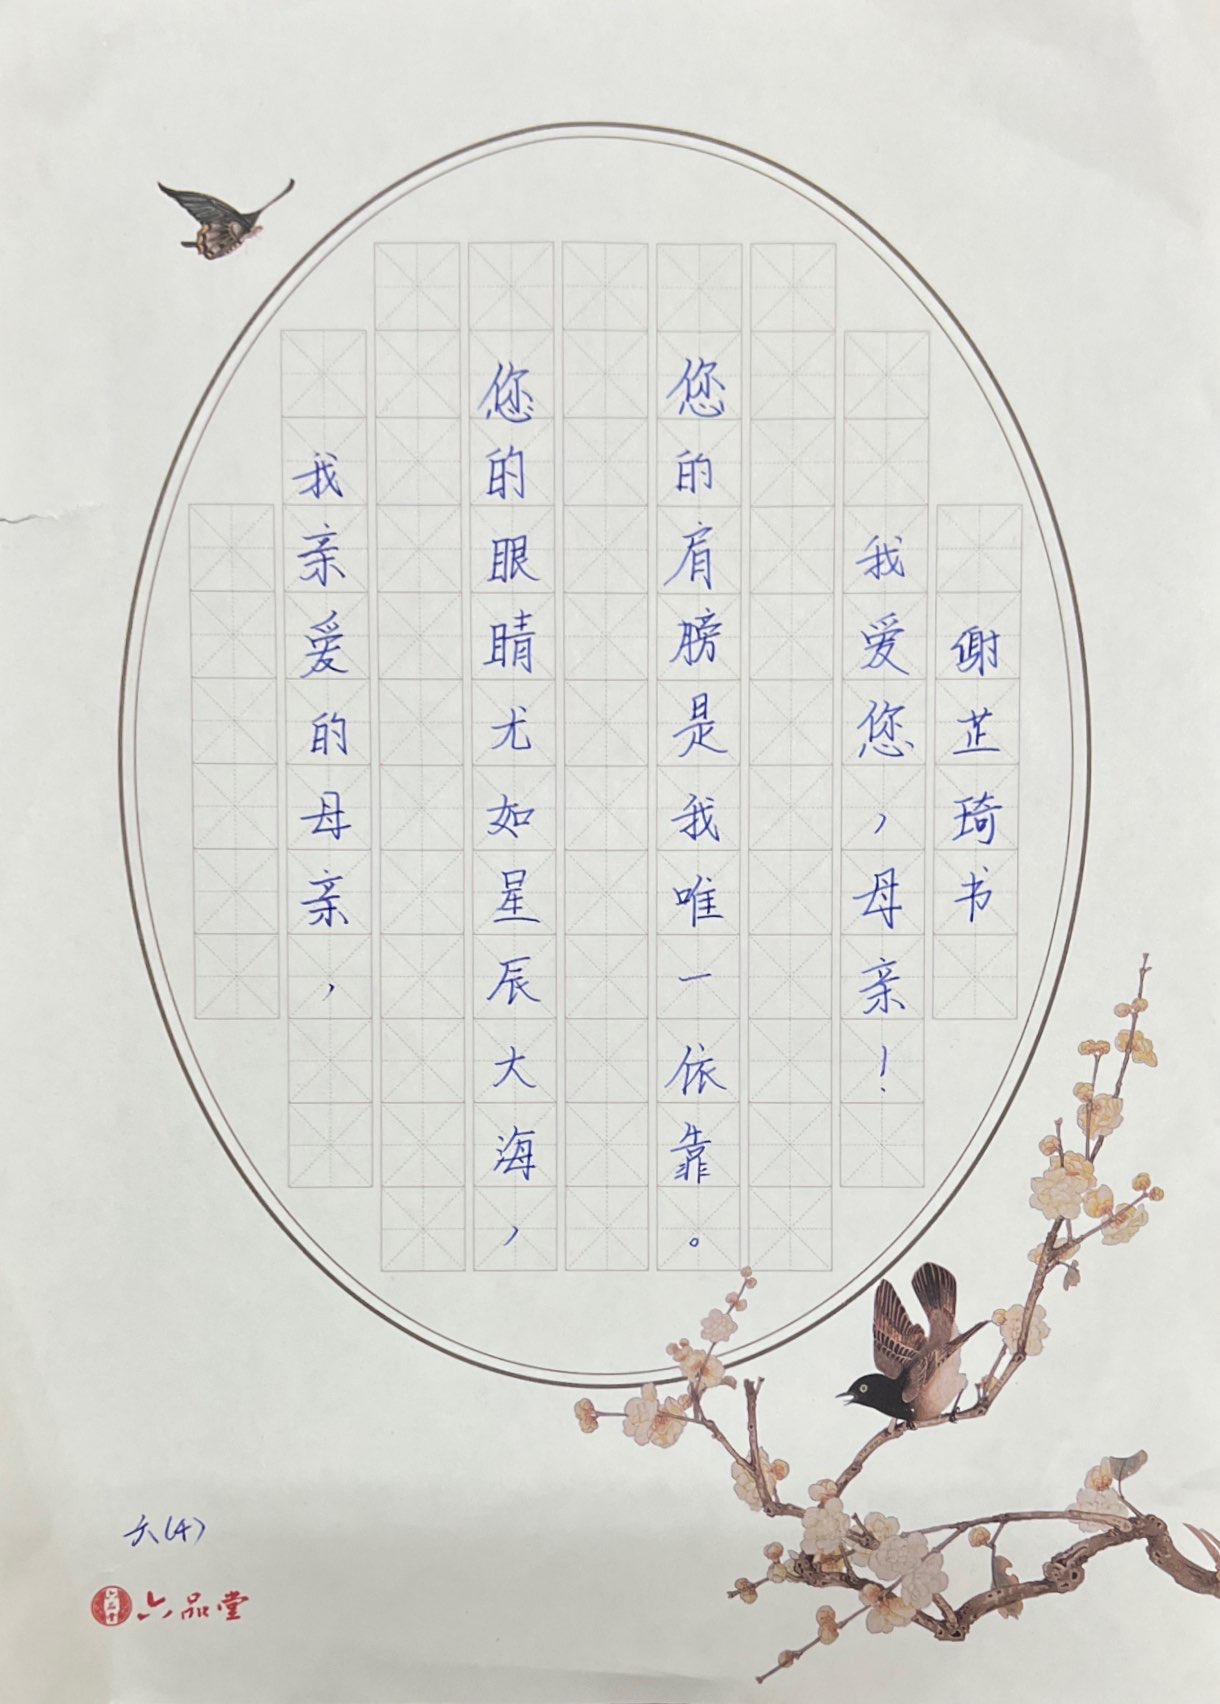 我亲爱的母亲，
您的眼睛尤如星辰大海，
您的肩膀是我唯一依靠。
我爱您，母亲！
谢芷琦书
六(4)
六品堂